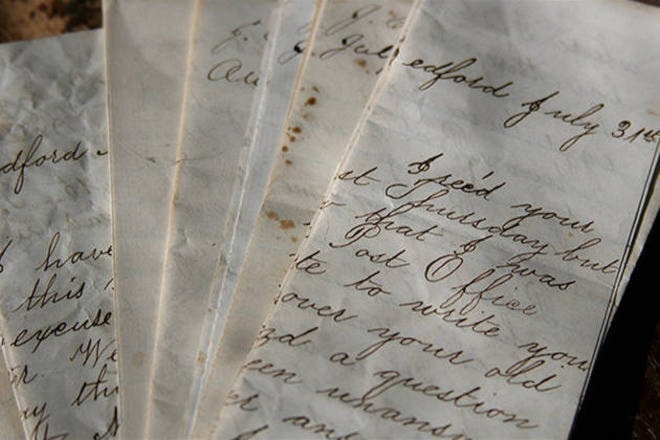 dford
I have
this
excuse
r. We
ay th
J.
Au
J.
J. Jul
edford July 31st
I rec'd your
st Thursday but
r that I was
Post Office
te to write you
over your old
d a question
een unansw
er an